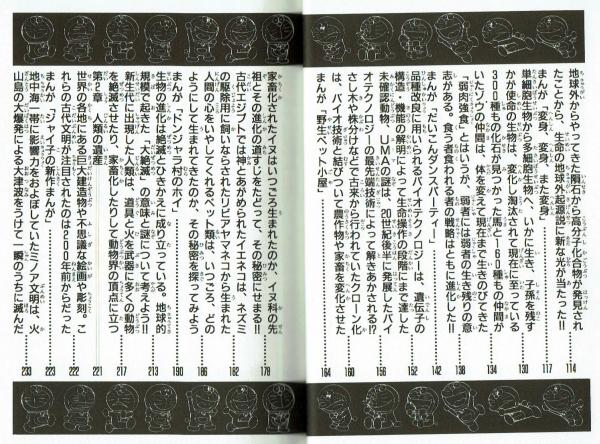 地球外からやってきた隕石から高分子化合物が発見され
たことから、生命の地球外起源説に新な光が当たった!!
114
まんが「変身、変身、また変身」
117
単細胞生物から多細胞生物へ、いかに生き、子孫を残す
かが使命の生物は、変化し淘汰されて現在に至っている
130
300種もの化石が見つかった馬と160種もの仲間が
いたゾウの仲間は、体を変えて現在まで生きのびてきた
134
「弱肉強食」とはいうが、弱者には弱者の生き残りの意
志がある。食う者食われる者の戦略はともに進化した!!
138
まんが「だいこんダンスパーティー」
142
品種改良に用いられるバイオテクノロジーは、遺伝子の
構造・機能の解明によって生命操作の段階にまで達した
152
未確認動物、UMAの謎は、20世紀後半に発展したバイ
オテクノロジーの最先端技術によって解きあかされる!?
156
さし木や株分けなどで古来から行われていたクローン化
は、バイオ技術と結びついて農作物や家畜を変化させた
160
まんが「野生ペット小屋」
164
家畜化されたイヌはいつごろ生まれたのか、イヌ科の先
祖とその進化の道すじをたどって、その秘密にせまる!!
178
古代エジプトでは神とあがめられたイエネコは、ネズミ
の駆除用に飼いならされたリビアヤマネコから生まれた
182
人間の心をいやしてくれるペット類は、いつごろ、どの
ようにして生まれてきたのか、その秘密を探ってみよう
186
まんが「ドンジャラ村のホイ」
190
生物の進化は絶滅とひきかえに成り立っている。地球的
規模で起きた「大絶滅」の意味と謎について考えよう!!
213
新生代に出現した人類は、道具と火を武器に多くの動物
を絶滅させたり、家畜化したりして動物界の頂点に立つ
217
第2章 人類の遺産
221
世界の各地にある巨大建造物や不思議な絵画や彫刻。こ
れらの古代文明が注目されたのは200年前からだった
222
まんが「ジャイ子の新作まんが」
223
地中海一帯に影響力をおよぼしていたミノア文明は、火
山島の大爆発による大津波をうけて一瞬のうちに滅んだ
233